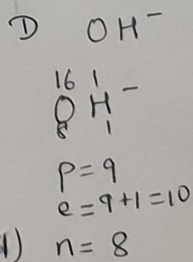 D OH⁻
16 1
O H⁻
8 1
p=9
e=9+1=10
1) n=8